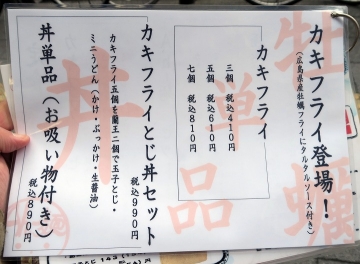 カキフライ登場！
（広島県産牡蠣フライにタルタルソース付き）
カキフライ
三個 税込410円
五個 税込610円
七個 税込810円
カキフライとじ丼セット
税込990円
カキフライ五個を蘭王二個で玉子とじ・
ミニうどん（かけ・ぶっかけ・生醤油）
丼単品（お吸い物付き）
税込890円
牡蠣
単品
丼